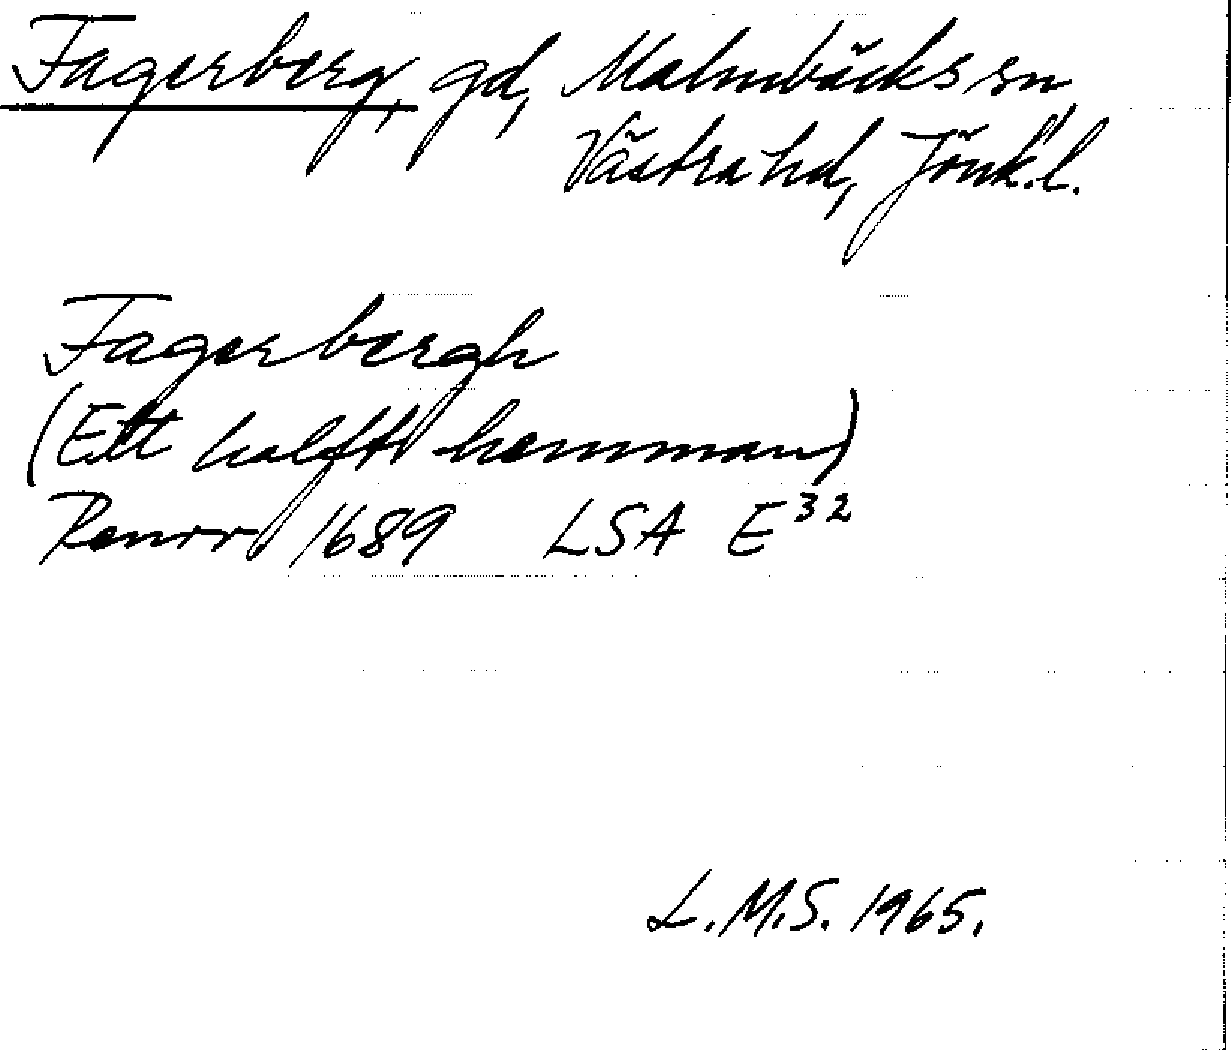 Fagerberg, gd, Malmbäcks sn,
Västra hd, Jönk.l.
Fagerbergh
(Ett halfft hemman)
Renov 1689 LSA E32
L.M.S. 1965.